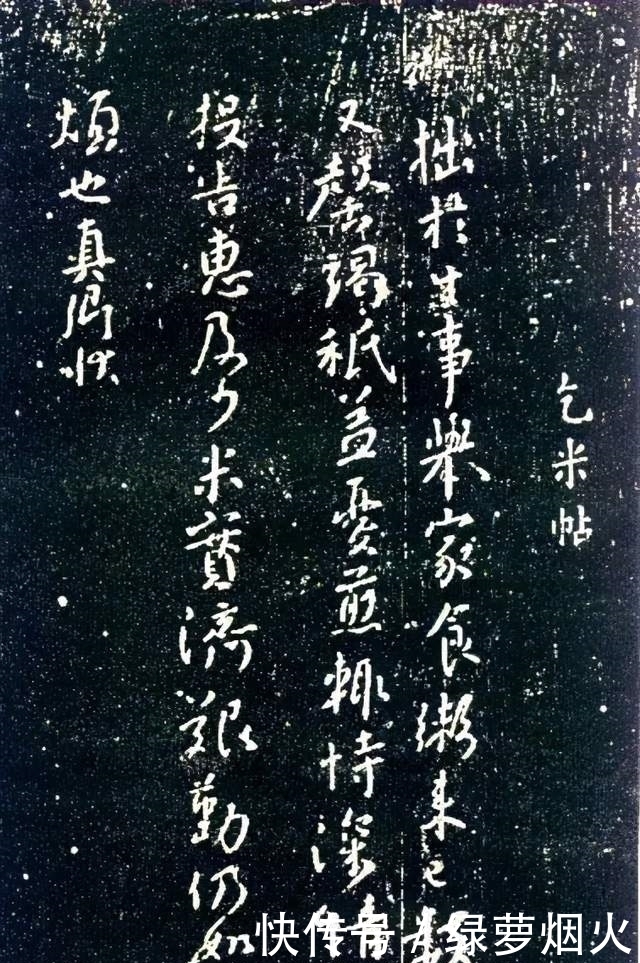 乞米帖
拙於生事舉家食粥來已數
又罄竭祗益憂煎輒恃深情
投告惠及少米實濟艱勤仍
煩也真卿狀
快传号/绿萝烟火